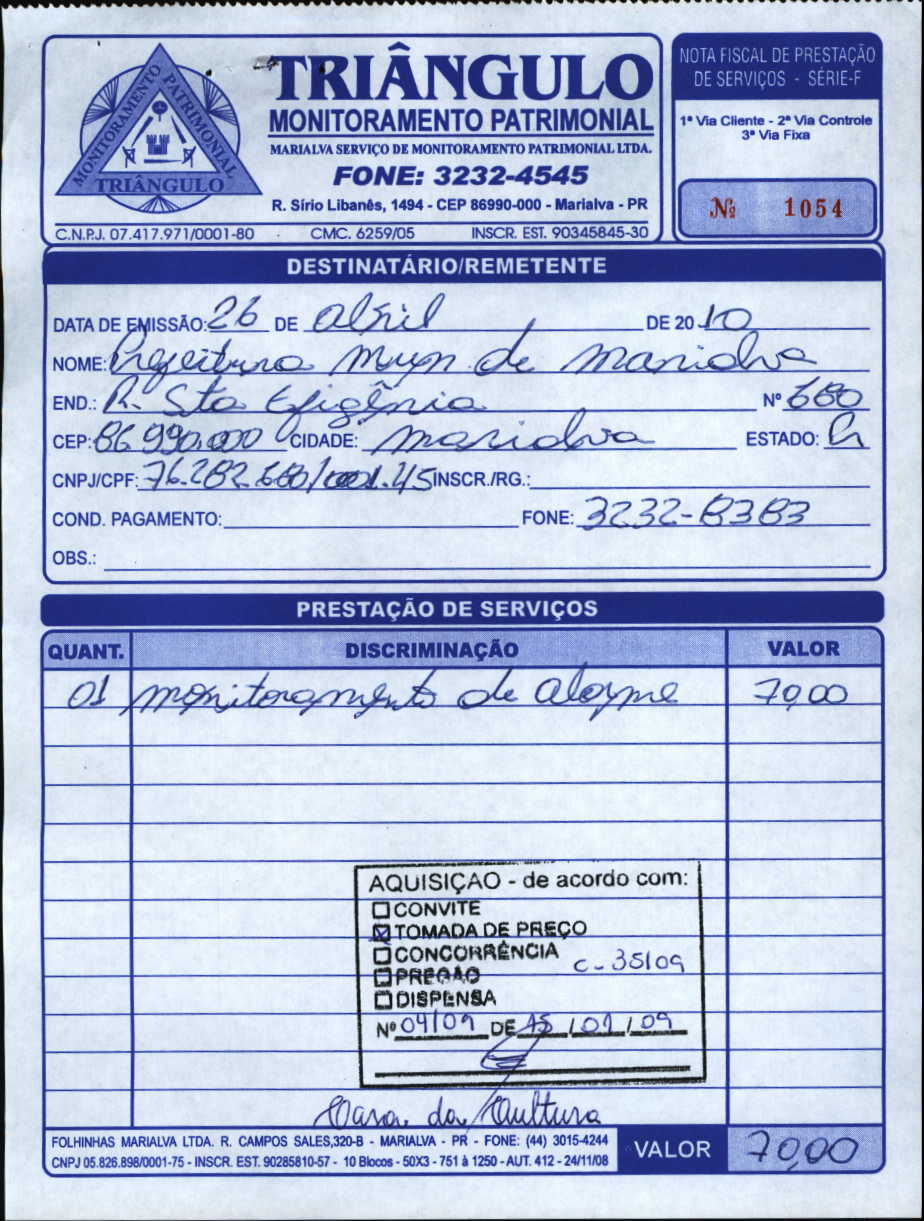 TRIÂNGULO
MONITORAMENTO PATRIMONIAL
MARIALVA SERVIÇO DE MONITORAMENTO PATRIMONIAL LTDA.
FONE: 3232-4545
R. Sírio Libanês, 1494 - CEP 86990-000 - Marialva - PR
MONITORAMENTO PATRIMONIAL
TRIÂNGULO
C.N.P.J. 07.417.971/0001-80 CMC. 6259/05 INSCR. EST. 90345845-30
NOTA FISCAL DE PRESTAÇÃO
DE SERVIÇOS - SÉRIE-F
1ª Via Cliente - 2ª Via Controle
3ª Via Fixa
Nº 1054
DESTINATÁRIO/REMETENTE
DATA DE EMISSÃO: 26 DE abril DE 2010
NOME: Prefeitura Mun de Marialva
END.: R. Sta Efigênia Nº 680
CEP: 86990.000 CIDADE: Marialva ESTADO: Pr
CNPJ/CPF: 76.282.680/0001.45 INSCR./RG.:
COND. PAGAMENTO: FONE: 3232-8383
OBS.:
PRESTAÇÃO DE SERVIÇOS
QUANT. DISCRIMINAÇÃO VALOR
01 monitoramento de alarme 70,00
AQUISIÇAO - de acordo com:
CONVITE
TOMADA DE PREÇO
CONCORRÊNCIA
C-35/09
PREGÃO
DISPENSA
Nº 04/09 DE 15/01/09
Casa da Cultura
FOLHINHAS MARIALVA LTDA. R. CAMPOS SALES,320-B - MARIALVA - PR - FONE: (44) 3015-4244
CNPJ 05.826.898/0001-75 - INSCR. EST. 90285810-57 - 10 Blocos - 50X3 - 751 à 1250 - AUT. 412 - 24/11/08
VALOR 70,00